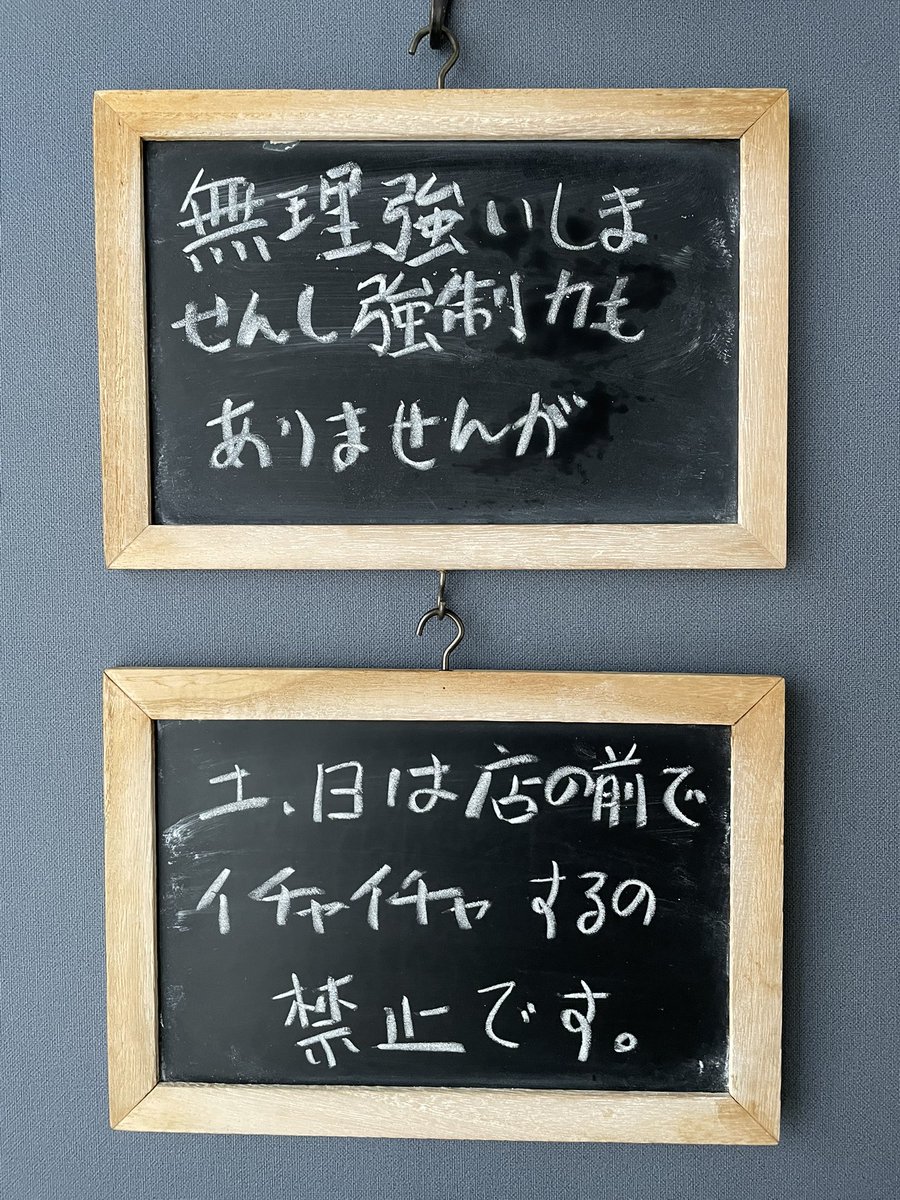 無理強いしま
せんし強制力も
ありませんが
土、日は店の前で
イチャイチャするの
禁止です。